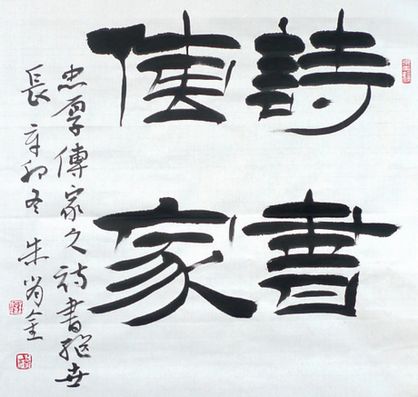 詩書
傳家
忠厚傳家久詩書繼世
長 辛卯冬 朱